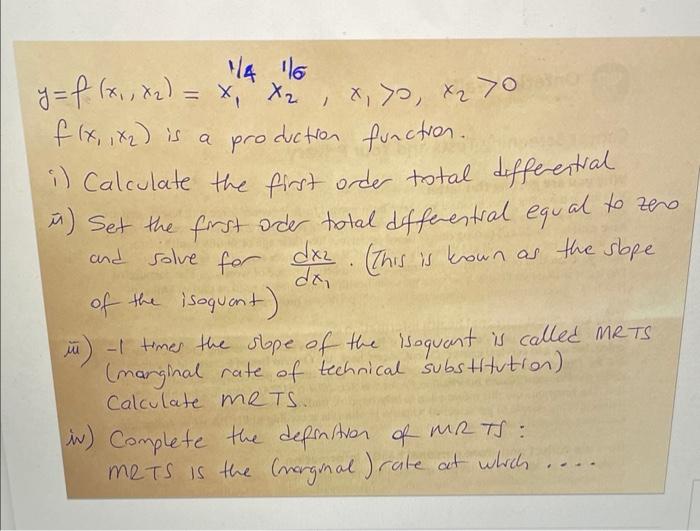 y=f(x₁,x₂) = x₁^1/4 x₂^1/6 , x₁>0, x₂>0
f(x₁,x₂) is a production function.
i) Calculate the first order total differential
ii) Set the first order total differential equal to zero
and solve for dx₂/dx₁ . (This is known as the slope
of the isoquant)
iii) -1 times the slope of the isoquant is called MRTS
(marginal rate of technical substitution)
Calculate MRTS.
iv) Complete the definition of MRTS :
MRTS is the (marginal) rate at which ....